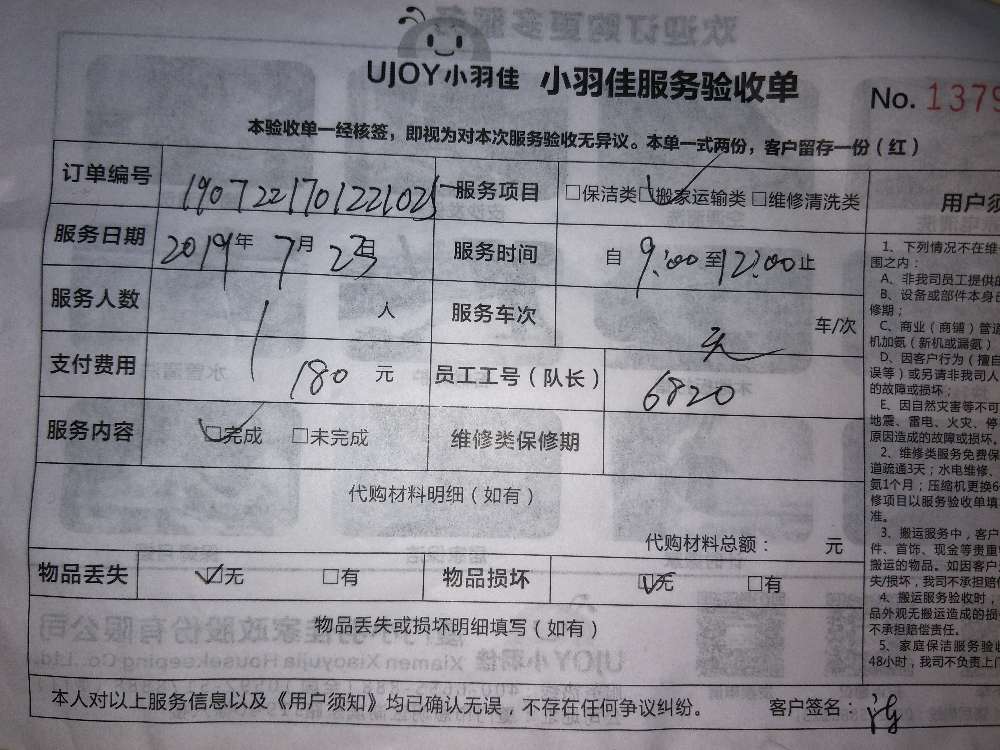 欢迎订购更多服务
UJOY小羽佳 小羽佳服务验收单
No. 1379
本验收单一经核签，即视为对本次服务验收无异议。本单一式两份，客户留存一份（红）
订单编号 190722170122102 服务项目 □保洁类 ☑搬家运输类 □维修清洗类
服务日期 2019年 7月 23日 服务时间 自 9:00至12:00止
服务人数 1 人 服务车次 车/次
支付费用 180 元 员工工号（队长） 6820
服务内容 ☑完成 □未完成 维修类保修期
代购材料明细（如有）
代购材料总额： 元
物品丢失 ☑无 □有 物品损坏 ☑无 □有
物品丢失或损坏明细填写（如有）
本人对以上服务信息以及《用户须知》均已确认无误，不存在任何争议纠纷。 客户签名：
用户须
1、下列情况不在维
围之内：
A、非我司员工提供的
B、设备或部件本身已
修期；
C、商业（商铺）普通
机加氨（新机或漏氨）
D、因客户行为（擅自
误等）或另请非我司人
的故障或损坏；
E、因自然灾害等不可
地震、雷电、火灾、停
原因造成的故障或损坏。
2、维修类服务免费保
道疏通3天；水电维修、
氨1个月；压缩机更换6
修项目以服务验收单填
准。
3、搬运服务中，客户
件、首饰、现金等贵重
搬运的物品。如因客户
失/损坏，我司不承担赔
4、搬运服务验收时，
品外观无搬运造成的损
不承担赔偿责任。
5、家庭保洁服务验收
48小时，我司不负责上门